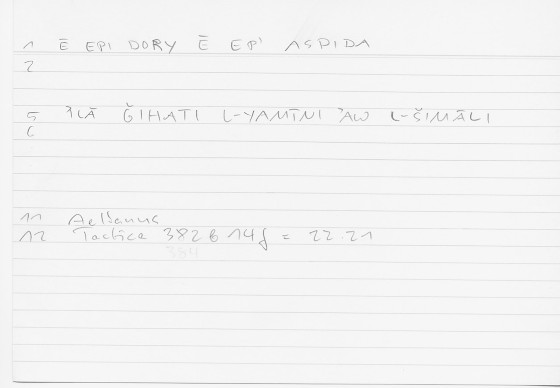 1 Ē EPI DORY Ē EPI ASPIDA
2
5 ʾILĀ ĞIHATI L-YAMĪNI ʾAW L-ŠIMĀLI
6
11 Aelianus
12 Tactica 382 b 14f = 22.21